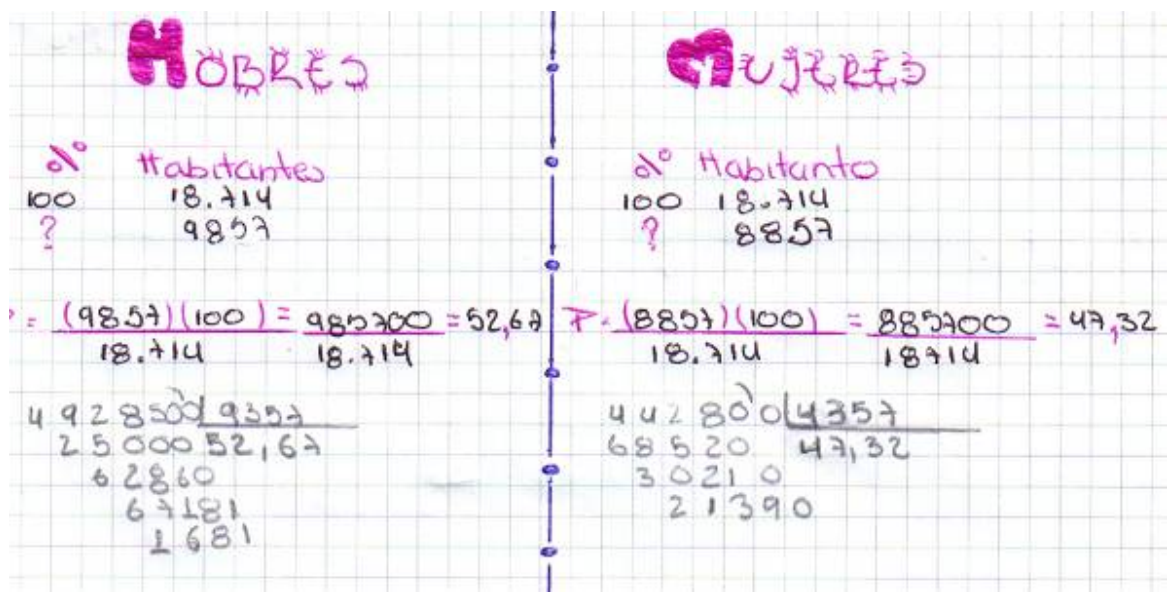 HOBRES
% Habitantes
100 18.714
? 9857
= (9857)(100) = 985700 = 52,67
18.714 18.714
492850'0 9357
25000 52,67
62860
67181
1681
MUJERES
% Habitanto
100 18.714
? 8857
P = (8857)(100) = 885700 = 47,32
18.714 18714
44280'0 4357
68520 47,32
30210
21390